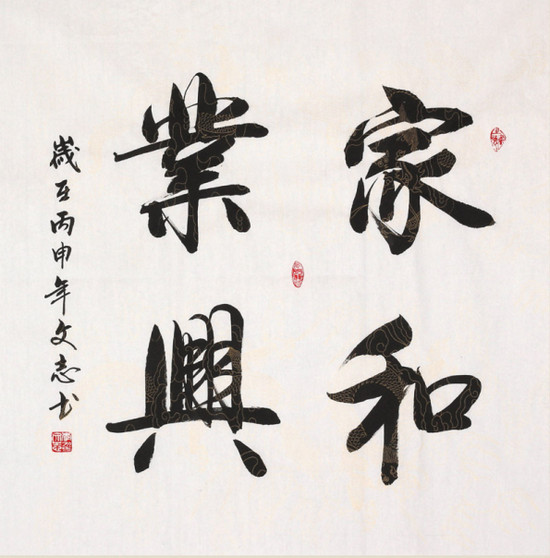 家和
業興
歲在丙申年文志书